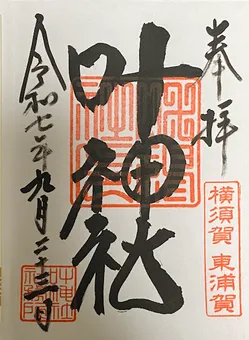 奉拝
横須賀 東浦賀
叶神社
令和七年九月二十三日